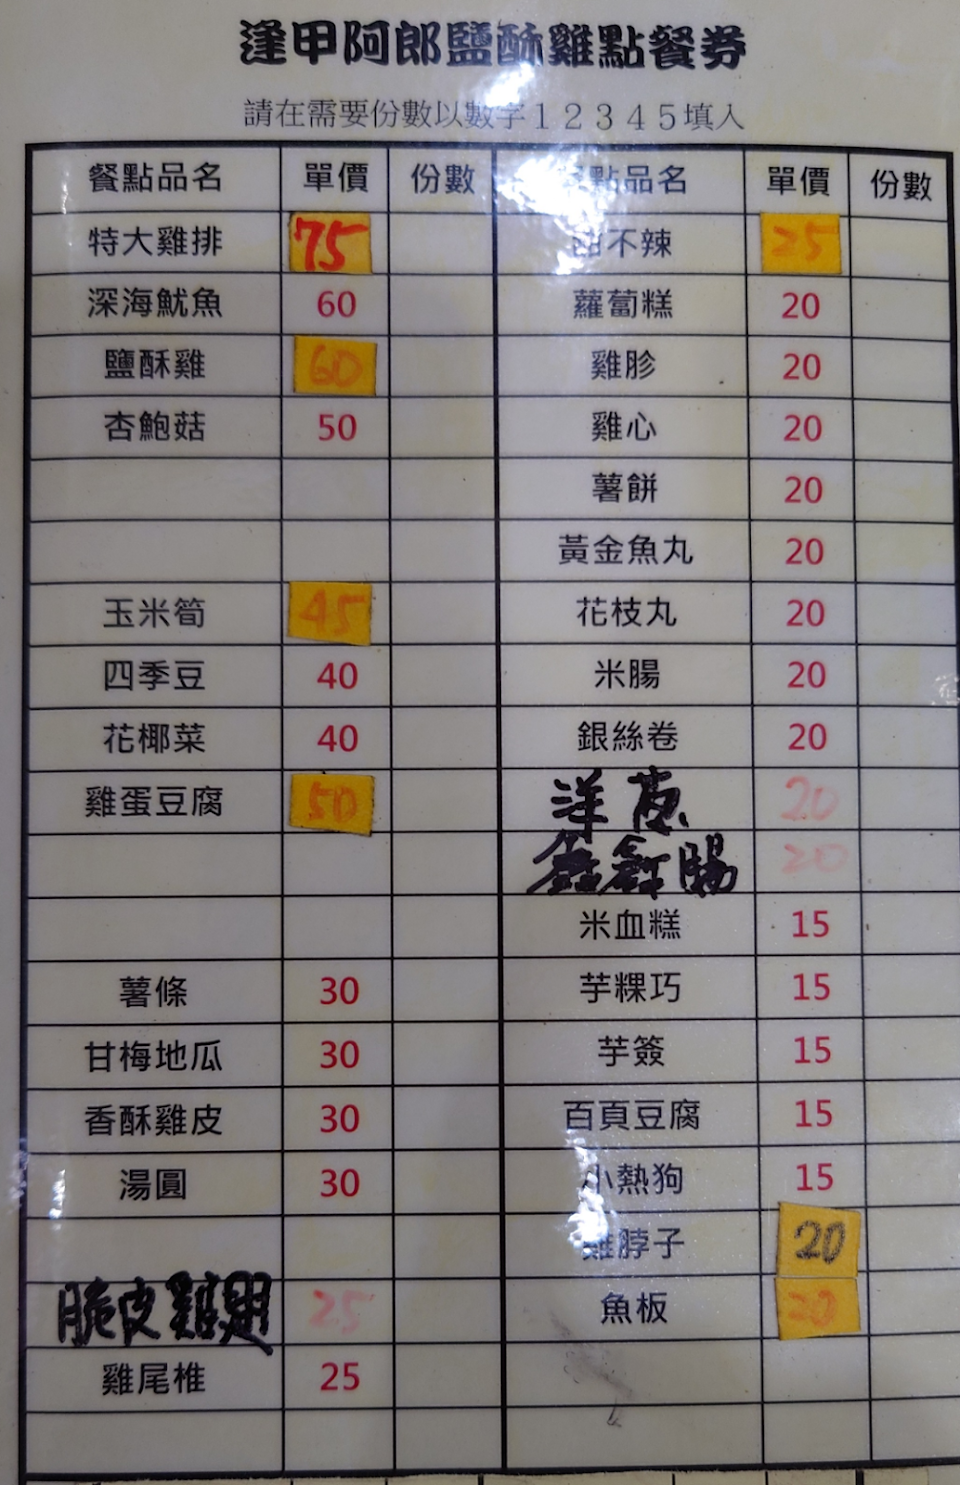 逢甲阿郎鹽酥雞點餐券
請在需要份數以數字12345填入
餐點品名 單價 份數 餐點品名 單價 份數
特大雞排 75 甜不辣 25
深海魷魚 60 蘿蔔糕 20
鹽酥雞 60 雞胗 20
杏鮑菇 50 雞心 20
薯餅 20
黃金魚丸 20
玉米筍 45 花枝丸 20
四季豆 40 米腸 20
花椰菜 40 銀絲卷 20
雞蛋豆腐 50 洋蔥 20
鑫鑫腸 20
米血糕 15
薯條 30 芋粿巧 15
甘梅地瓜 30 芋簽 15
香酥雞皮 30 百頁豆腐 15
湯圓 30 小熱狗 15
雞脖子 20
脆皮雞翅 25 魚板 20
雞尾椎 25